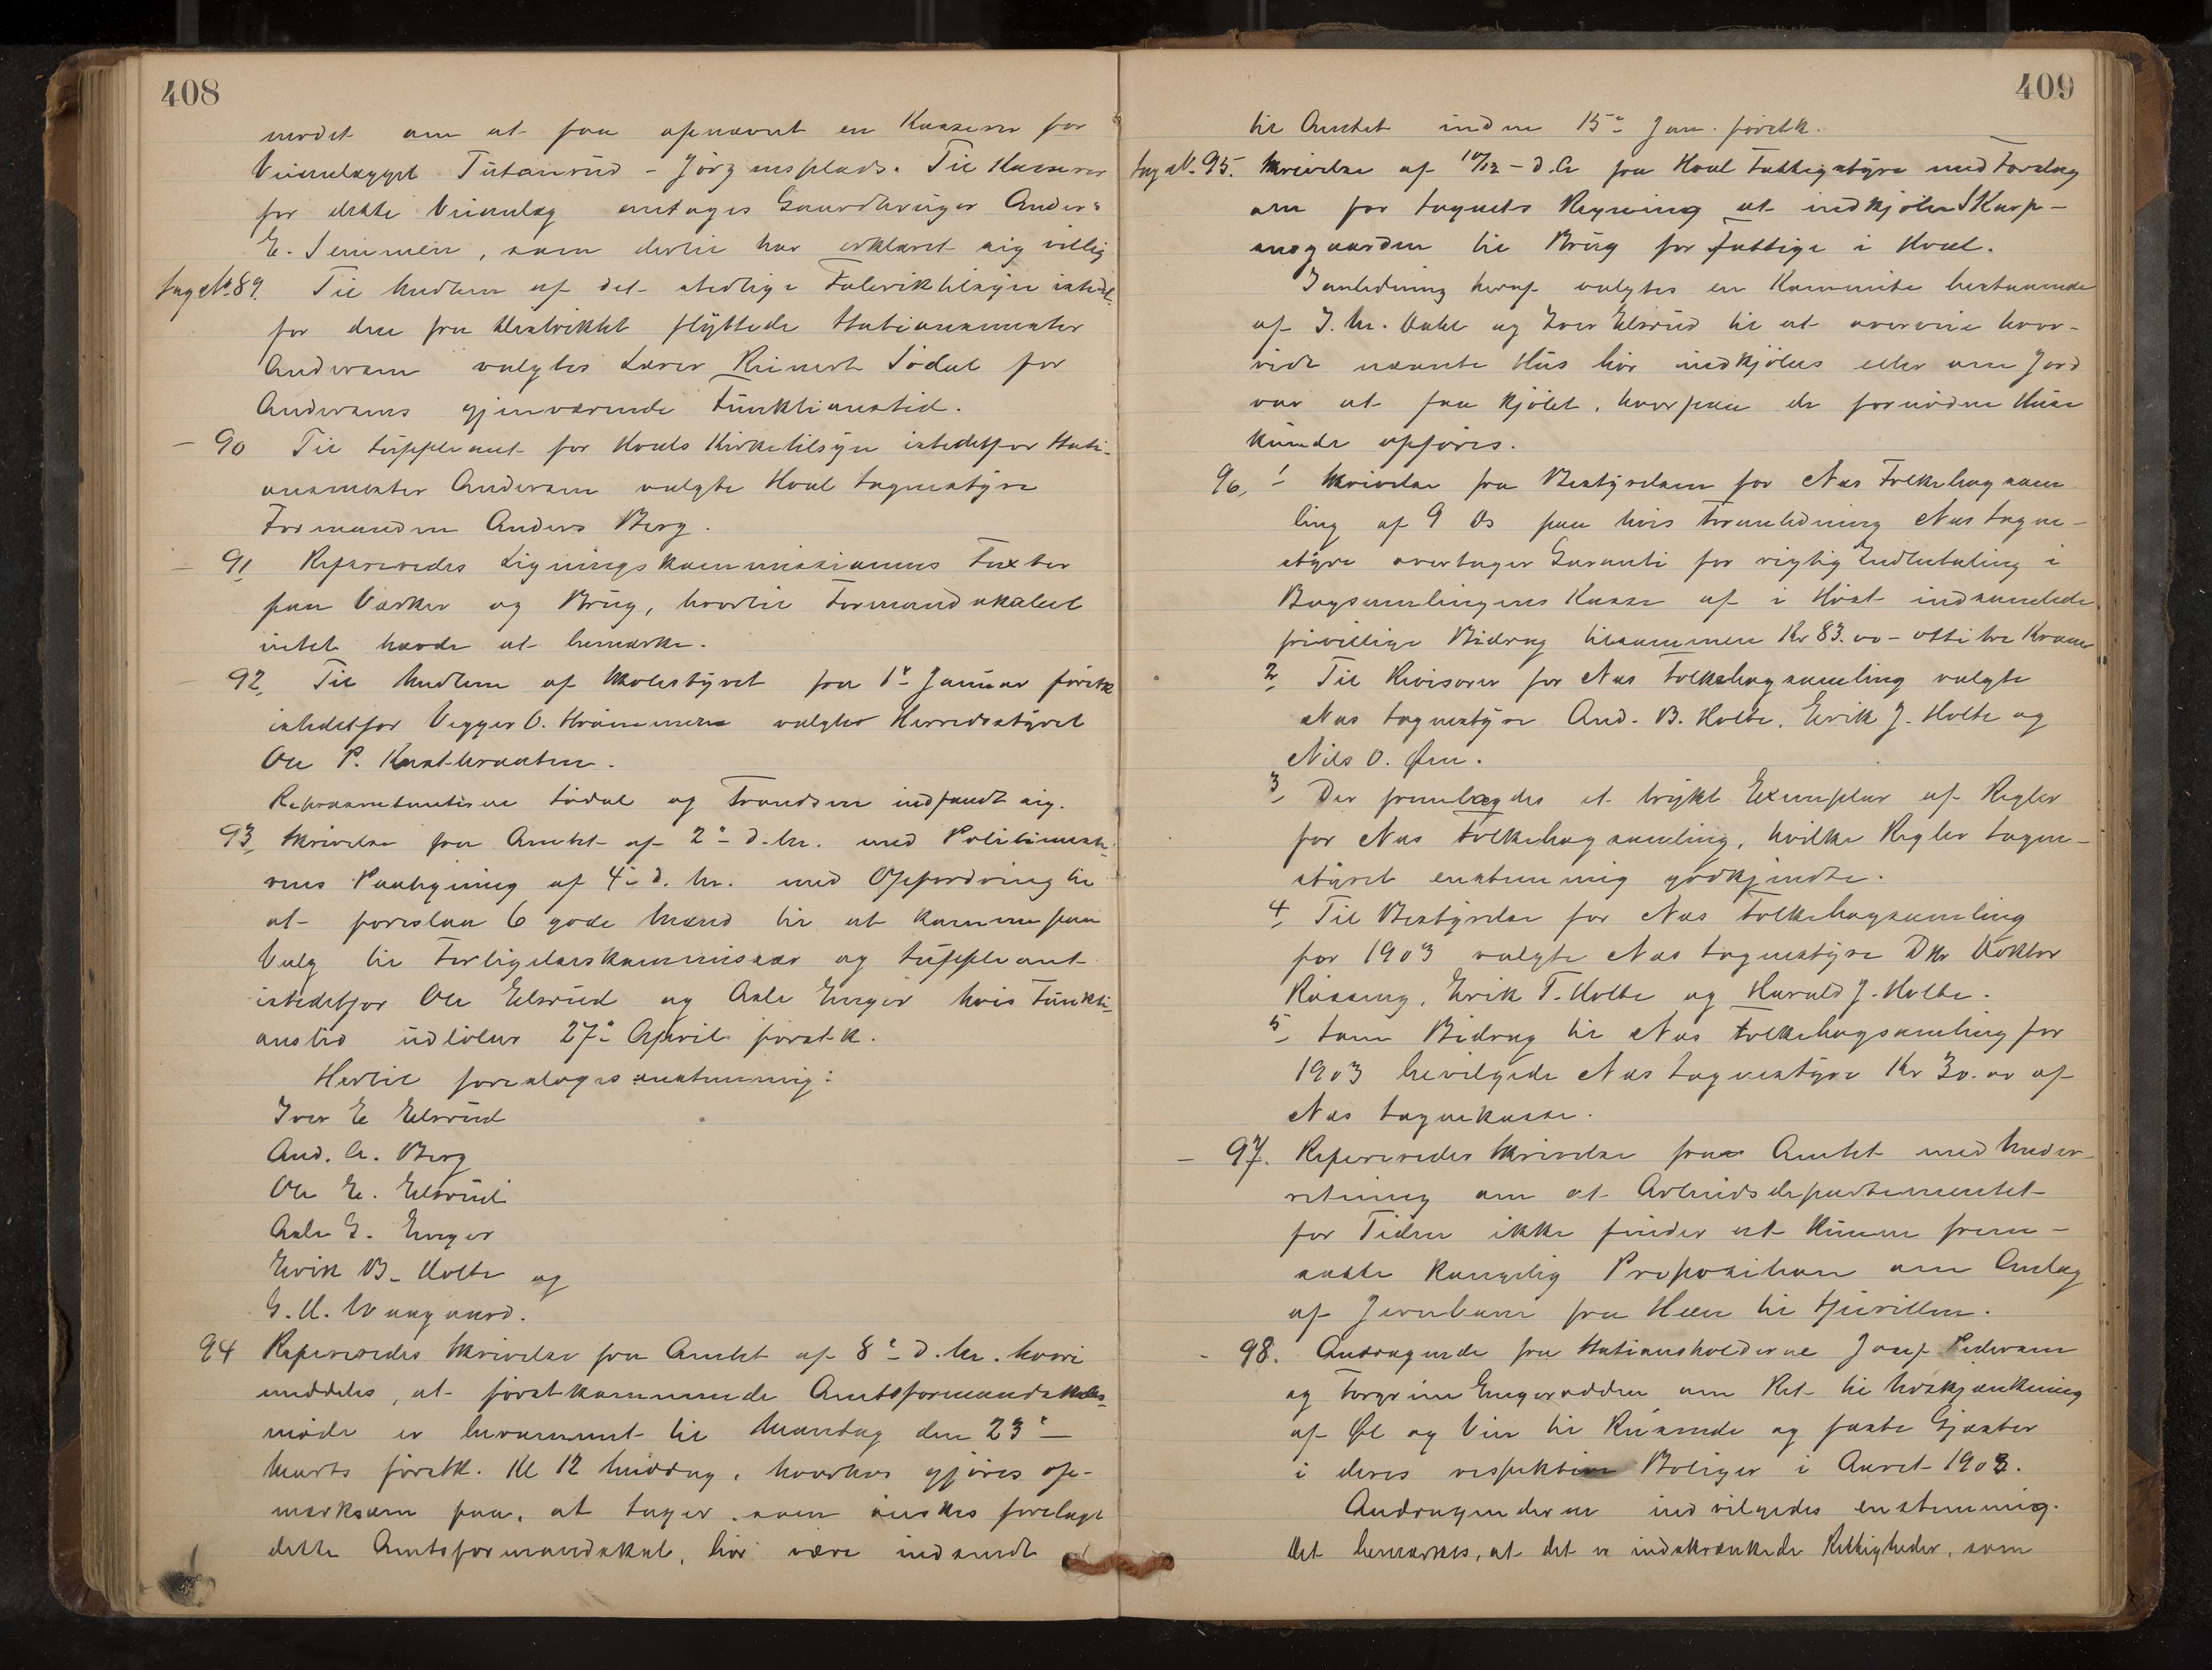 408
mødet om at faa opnævnt en Kasserer for
Veianlægget Tutanrud - Jørgensplads. Til Kasserer
for dette Veianlæg antages Gaardbruger Anders
E. Semmen, som dertil har erklæret sig villig
Sag No. 89. Til Medlem af det stedlige Fabriktilsyn istedet
for den fra Distriktet flyttede Stationsmester
Andersen valgtes Lærer Reinert Sødal for
Andersens gjenværende Funktionstid.
- 90 Til Suppleant for Hovls Kirketilsyn istedetfor Stati-
onsmester Andersen valgte Hovl Sognestyre
Formanden Anders Berg.
- 91 Refereredes Ligningskommissionens Taxter
paa Værker og Brug, hvortil Formandskabet
intet havde at bemærke.
- 92, Til Medlem af Skolestyret fra 1ste Januar førstk
istedetfor Vegger O. valgtes Herredsstyret
Ole P. Knatbraaten.
Repræsentanterne Sødal og Trondsen indfandt sig.
93, Skrivelse fra Amtet af 2den d. M. med Politimest-
rens Paategning af 4de d. M. med Opfordring til
at foreslaa 6 gode Mænd til at komme paa
Valg til Forligelseskommissær og Suppleant
istedetfor Ole Elsrud og Asle Enger hvis Funkti-
onstid udløber 27de April førstk.
Hertil foresloges enstemmig:
Iver E Elsrud
And. A. Berg
Ole E. Elsrud
Asle G. Enger
Erik B. Holte og
G. H. Waagaard.
94 Refereredes Skrivelse fra Amtet af 8de d. M. hvori
meddeles, at førstkommende Amtsformandskabs-
møde er berammet til Mandag den 23de
Marts førstk. Kl 12 Middag, hvorhos gjøres op-
mærksom paa, at Sager, som ønskes forelagt
dette Amtsformandskab, bør være indsendt
409
til Amtet inden 15de Jan. førstk.
Sag N. 95. Skrivelse af 10/12 - d.A fra Hovl Fattigstyre med Forslag
om for Sognets Regning at indkjøbe Skarp-
snogaarden til Brug for fattige i Hovl.
I anledning heraf valgtes en Kommite bestaaende
af J. M. Dahl og Iver Elsrud til at overveie hvor-
vidt nævnte Hus bør indkjøbes eller om Jord
var at faa kjøbt, hvorpaa de fornødne Huse
kunde opføres.
96, 1 Skrivelse fra Bestyrelsen for Næs Folkebogsam
ling af 9 ds paa hvis Foranledning Næs Sogne-
styre overtager Garanti for rigtig Indbetaling i
Bogsamlingens Kasse af i Høst indsamlede
frivillige Bidrag tilsammen Kr 83.00 - otti tre Kroner
2, Til Revisorer for Næs Folkebogsamling valgte
Næs Sognestyre And. B. Holte, Erik J. Holte og
Nils O. Øen.
3, Der fremlagdes et trykt Exemplar af Regler
for Næs Folkebogsamling, hvilke Regler Sogne-
styret enstemmig godkjendte.
4, Til Bestyrelse for Næs Folkebogsamling
for 1903 valgte Næs Sognestyre DHr Doktor
Røssing, Erik T. Holte og Harald J. Holte.
5, Som Bidrag til Næs Folkebogsamling for
1903 bevilgede Næs Sognestyre Kr 30.00 af
Næs Sognekasse.
- 97. Refereredes Skrivelse fra Amtet med Under-
retning om at Arbeidsdepartementet
for Tiden ikke finder at kunne frem-
sætte kongelig Proposition om Anlæg
af Jernbane fra Hen til Sperillen.
- 98. Andragende fra Stationsholderne Josef Pedersen
og Torgrim Engerodden om Ret til Udskjænkning
af Øl og Vin til Reisende og faste Gjæster
i deres respektive Boliger i Aaret 1903.
Andragenderne indvilgedes enstemmig.
Det bemærkes, at det er indskrænkede Rettigheder, som